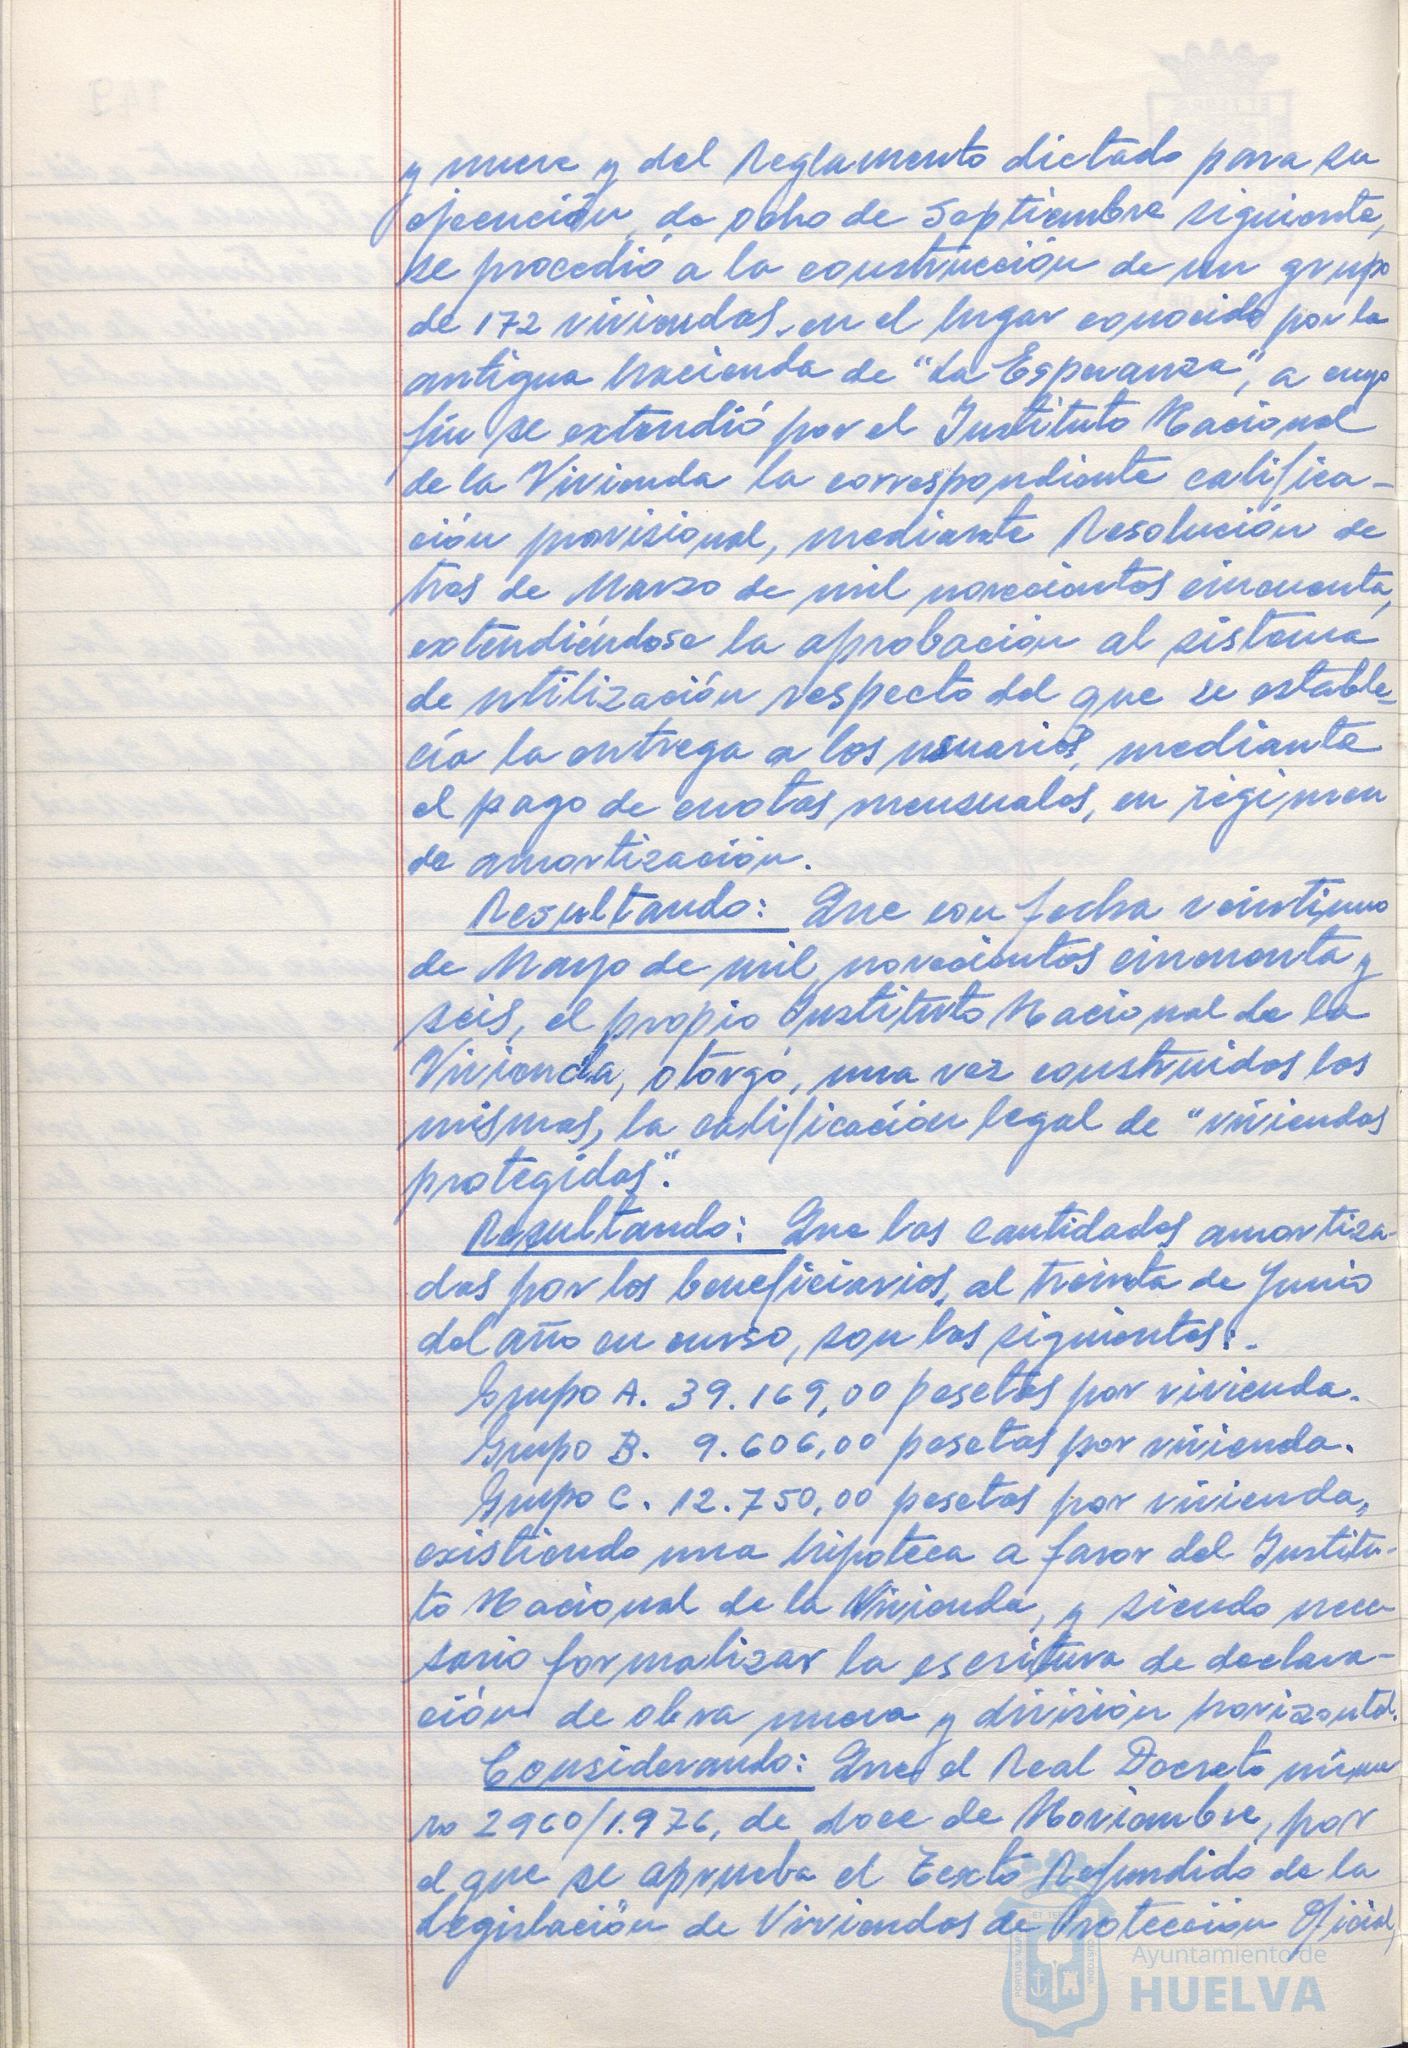 y nueve y del Reglamento dictado para su
ejecución, de ocho de Septiembre siguiente,
se procedió a la construcción de un grupo
de 172 viviendas, en el lugar conocido por la
antigua hacienda de "La Esperanza", a cuyo
fin se extendió por el Instituto Nacional
de la Vivienda la correspondiente califica-
ción provisional, mediante Resolución de
tres de Marzo de mil novecientos cincuenta,
extendiéndose la aprobación al sistema
de utilización respecto del que se estable-
cía la entrega a los usuarios, mediante
el pago de cuotas mensuales, en régimen
de amortización.
Resultando: Que con fecha veintiuno
de Mayo de mil novecientos cincuenta y
seis, el propio Instituto Nacional de la
Vivienda, otorgó, una vez construidos los
mismos, la calificación legal de "viviendas
protegidas".
Resultando: Que las cantidades amortiza-
das por los beneficiarios, al treinta de Junio
del año en curso, son las siguientes:.
Grupo A. 39.169,00 pesetas por vivienda.
Grupo B. 9.606,00 pesetas por vivienda.
Grupo C. 12.750,00 pesetas por vivienda,
existiendo una hipoteca a favor del Institu-
to Nacional de la Vivienda, y siendo nece-
sario formalizar la escritura de declara-
ción de obra nueva y división horizontal.
Considerando: Que el Real Decreto núme-
ro 2960/1.976, de doce de Noviembre, por
el que se aprueba el Texto Refundido de la
Legislación de Viviendas de Protección Oficial,
Ayuntamiento de
HUELVA